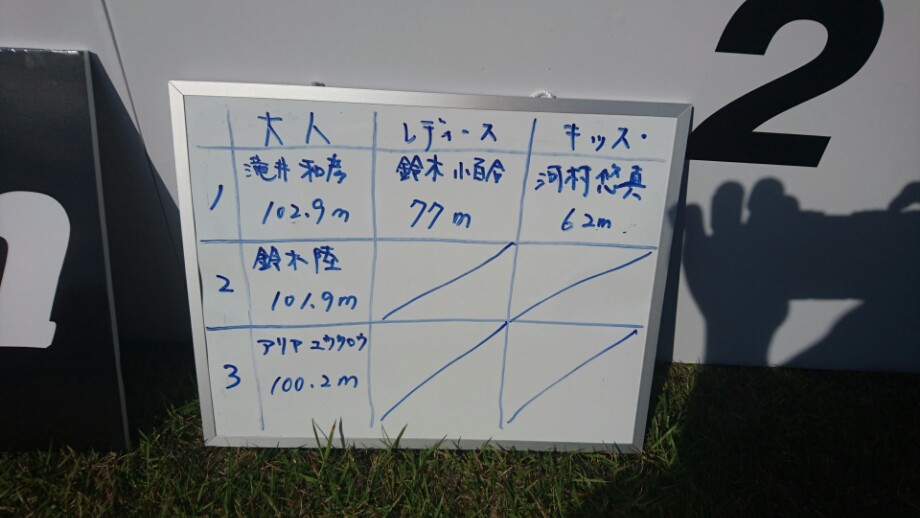 大人 レディース キッズ・
1 滝井和彦 鈴木小百合 河村悠真
102.9m 77m 62m
2 鈴木陸
101.9m
3 アリヤユウタロウ
100.2m
2